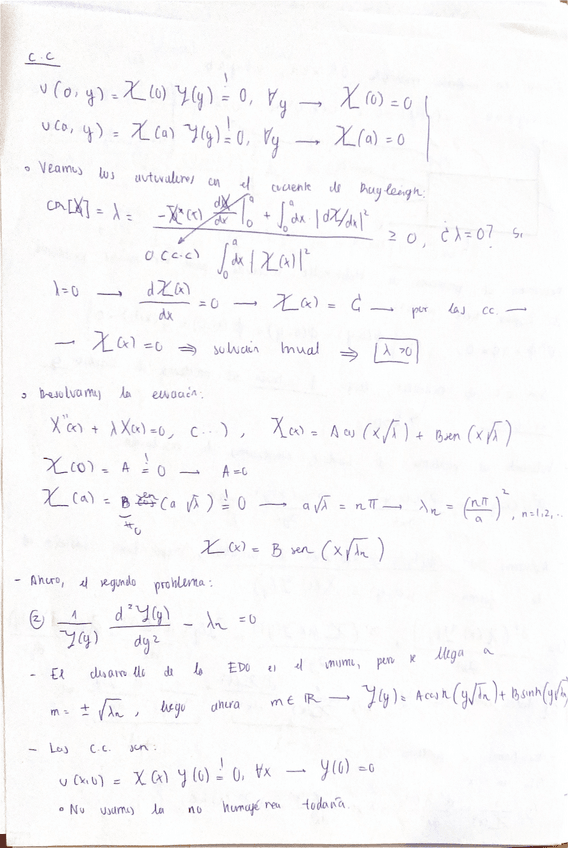 C.C
u(0, y) = X(0) Y(y) =! 0, ∀y → X(0) = 0
u(a, y) = X(a) Y(y) =! 0, ∀y → X(a) = 0
• Veamos los autovalores con el cociente de Rayleigh:
[X] = λ = (-X*(x) dX/dx |₀ᵃ + ∫₀ᵃ dx |dX/dx|²) / (∫₀ᵃ dx |X(x)|²) ≥ 0, ¿λ=0? Si
0 (C.C)
λ=0 → dX(x)/dx = 0 → X(x) = C → por las cc. →
→ X(x) = 0 ⇒ solución trivial ⇒ λ > 0
• Resolvamos la ecuación:
X''(x) + λX(x) = 0, (...), X(x) = A cos(x√λ) + B sen(x√λ)
X(0) = A =! 0 → A=0
X(a) = B sen (a√λ) =! 0 → a√λ = nπ → λₙ = (nπ/a)², n=1,2,..
≠0
X(x) = B sen (x√λₙ)
- Ahora, el segundo problema:
② 1/Y(y) d²Y(y)/dy² - λₙ = 0
- El desarrollo de la EDO es el mismo, pero se llega a
m = ± √λₙ, luego ahora m ∈ ℝ → Y(y) = A cosh(y√λₙ) + B sinh(y√λₙ)
- Las C.C. son:
u(x,0) = X(x) Y(0) =! 0, ∀x → Y(0) = 0
• No usamos la no homogénea todavía.